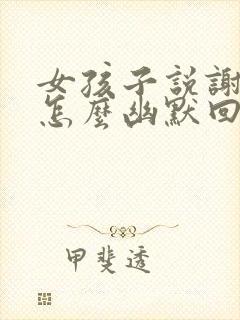 女孩子説謝
怎麼幽默回
甲斐透